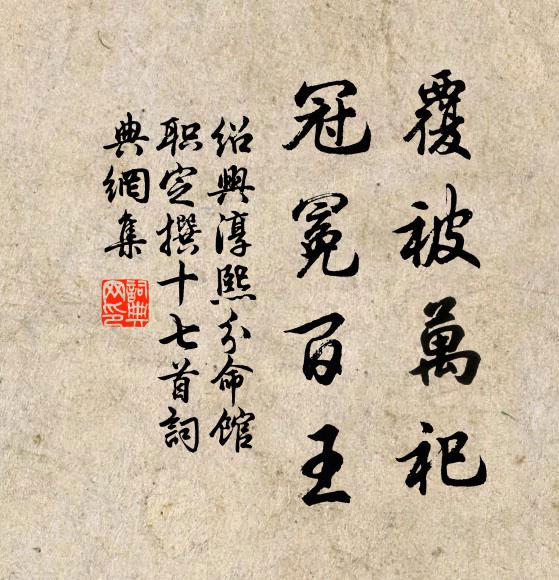 覆被萬祀
冠冕百王
紹興淳熙分命館
职定撰十七首詞
典網集
詞典
网印